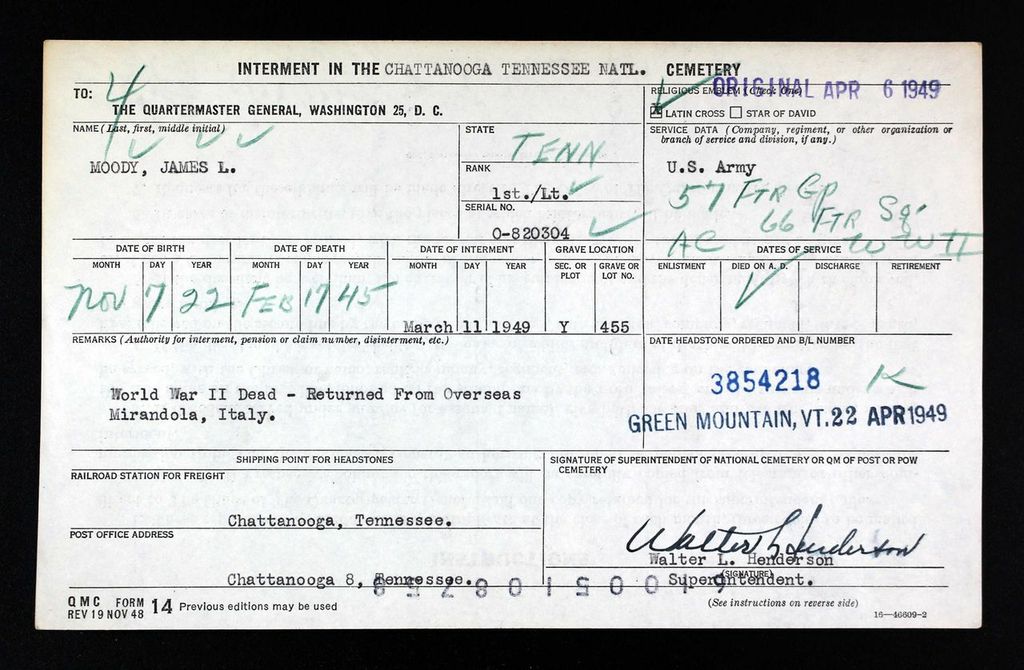 INTERMENT IN THE CHATTANOOGA TENNESSEE NATL. CEMETERY
ORIGINAL APR 6 1949
4
TO:
THE QUARTERMASTER GENERAL, WASHINGTON 25, D. C.
RELIGIOUS EMBLEM (Check One)
LATIN CROSS STAR OF DAVID
NAME (Last, first, middle initial)
MOODY, JAMES L.
STATE
TENN
RANK
1st./Lt.
SERIAL NO.
O-820304
SERVICE DATA (Company, regiment, or other organization or
branch of service and division, if any.)
U.S. Army
57 FTR GP
66 FTR Sq.
AC WW II
DATE OF BIRTH DATE OF DEATH DATE OF INTERMENT GRAVE LOCATION DATES OF SERVICE
MONTH DAY YEAR MONTH DAY YEAR MONTH DAY YEAR SEC. OR PLOT GRAVE OR LOT NO. ENLISTMENT DIED ON A. D. DISCHARGE RETIREMENT
Nov 7 22 FEB 17 45
March 11 1949 Y 455
REMARKS (Authority for interment, pension or claim number, disinterment, etc.)
World War II Dead - Returned From Overseas
Mirandola, Italy.
DATE HEADSTONE ORDERED AND B/L NUMBER
3854218 K
GREEN MOUNTAIN, VT. 22 APR 1949
SHIPPING POINT FOR HEADSTONES
RAILROAD STATION FOR FREIGHT
Chattanooga, Tennessee.
POST OFFICE ADDRESS
Chattanooga 8, Tennessee.
SIGNATURE OF SUPERINTENDENT OF NATIONAL CEMETERY OR QM OF POST OR POW
CEMETERY
Walter L Henderson
Walter L. Henderson
(SIGNATURE)
Superintendent.
QMC FORM 14 Previous editions may be used
REV 19 NOV 48
(See instructions on reverse side)
16—46609-2